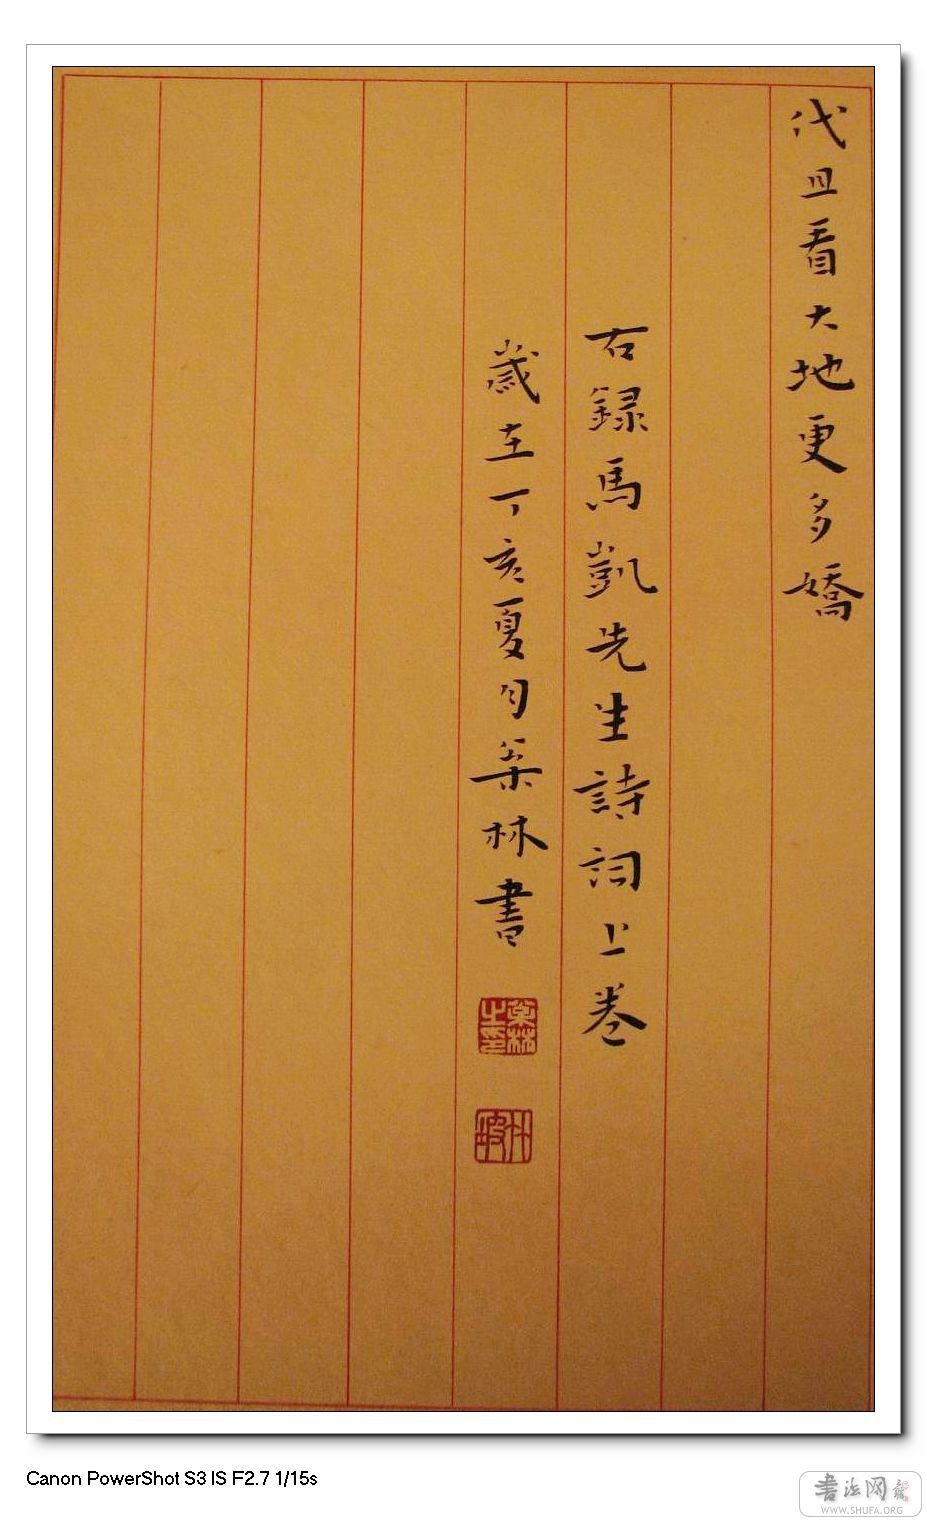 代且看大地更多嬌
右録馬凱先生詩詞上卷
歲在丁亥夏月葉林書
葉林之印
Canon PowerShot S3 IS F2.7 1/15s
書法网
WWW.SHUFA.ORG